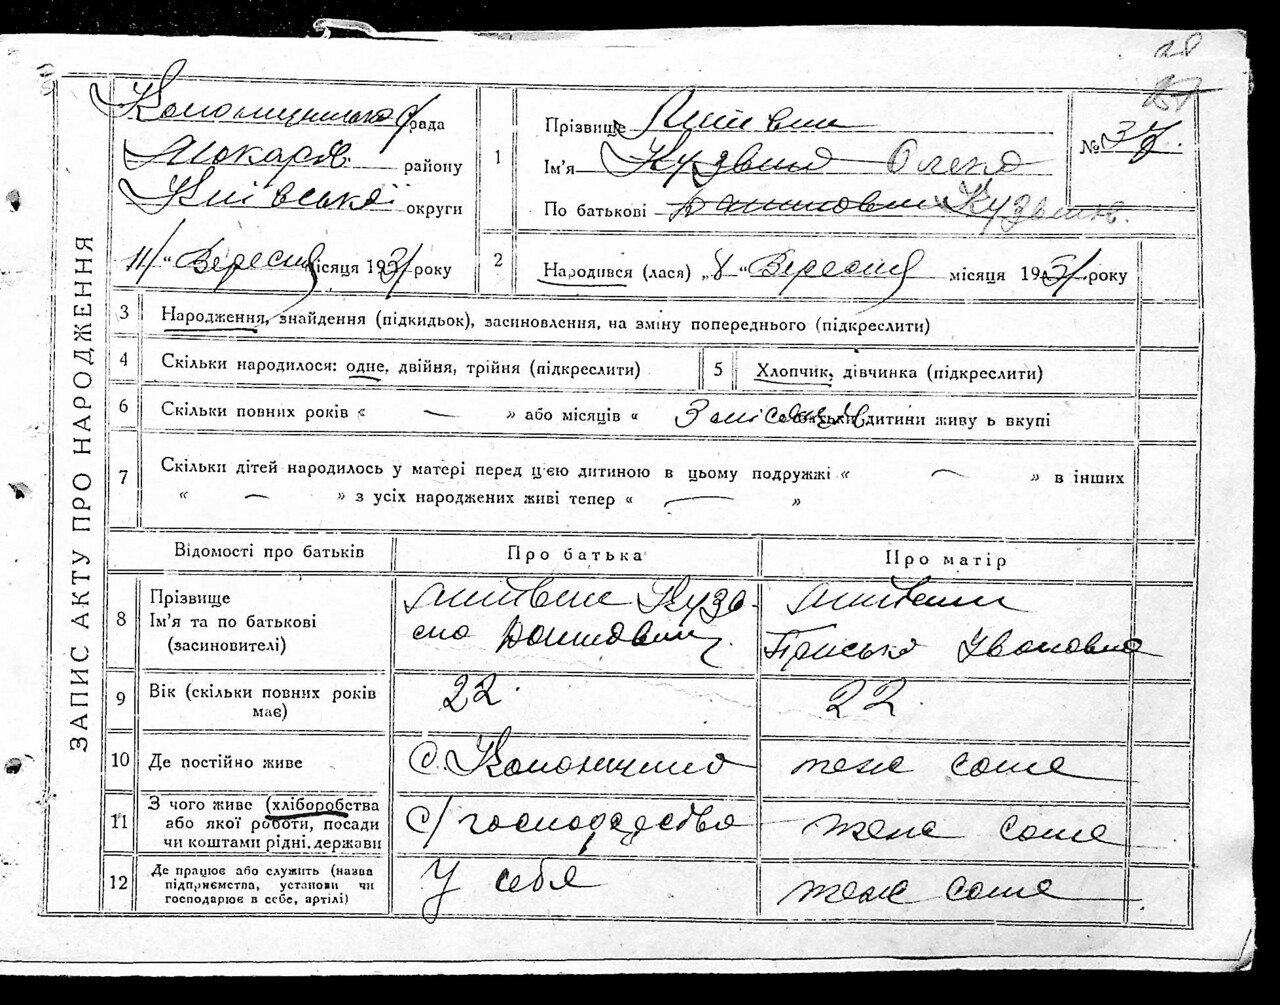 ЗАПИС АКТУ ПРО НАРОДЖЕННЯ
рада
Макарів району
Київської округи
11 " Вересня місяця 1931 року
1
Прізвище Литвин
Ім'я Кузьма Олекса
По батькові Кузьмов.
№ 37.
2
Народився (лася) „8 " Вересня місяця 1931 року
3 Народження, знайдення (підкидьок), засиновлення, на зміну попереднього (підкреслити)
4 Скільки народилося: одне, двійня, трійня (підкреслити)
5 Хлопчик, дівчинка (підкреслити)
6 Скільки повних років « — » або місяців « дитини живу ь вкупі
7 Скільки дітей народилось у матері перед цією дитиною в цьому подружжі « — » в інших
« — » з усіх народжених живі тепер « — »
Відомості про батьків Про батька Про матір
8 Прізвище
Ім'я та по батькові
(засновителі)
Литвин Кузь-
ма
Литвин
Пріська Івановна
9 Вік (скільки повних років
має)
22.
22.
10 Де постійно живе
с.
теж саме
11 З чого живе (хліборобства
або якої роботи, посади
чи коштами рідні, держави
с/господарство
теж саме
12 Де працює або служить (назва
підприємства, установи чи
господарює в себе, артілі)
У себя
теж саме